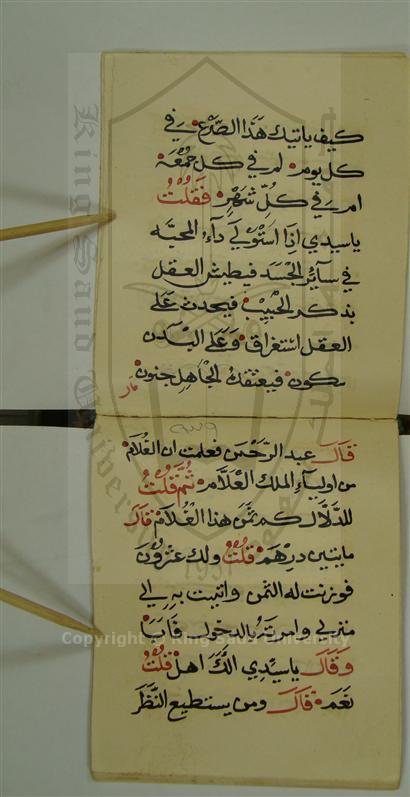 كيف ياتيك هذا الصرع في
كل يوم ام في كل جمعة
ام في كل شهر فقلت
ياسيدي اذا استولي داء المحبه
في ساير الجسد فيطيش العقل
بذكر الحبيب فيحدث على
العقل استغراق وعلى البدن
سكون فيعتقده الجاهل جنون
قال عبد الرحمن فعلمت ان الغلام
من اولياء الملك العلام ثم قلت
للدلال كم ثمن هذا الغلام قال
مايتين درهم قلت ولك عشرون
فوزنت له الثمن واتيت به الي
منزلي وامرته بالدخول فابا
وقال ياسيدي الك اهل قلت
نعم قال ومن يستطيع النظر
King Saud University
1957
Copyright © King Saud University